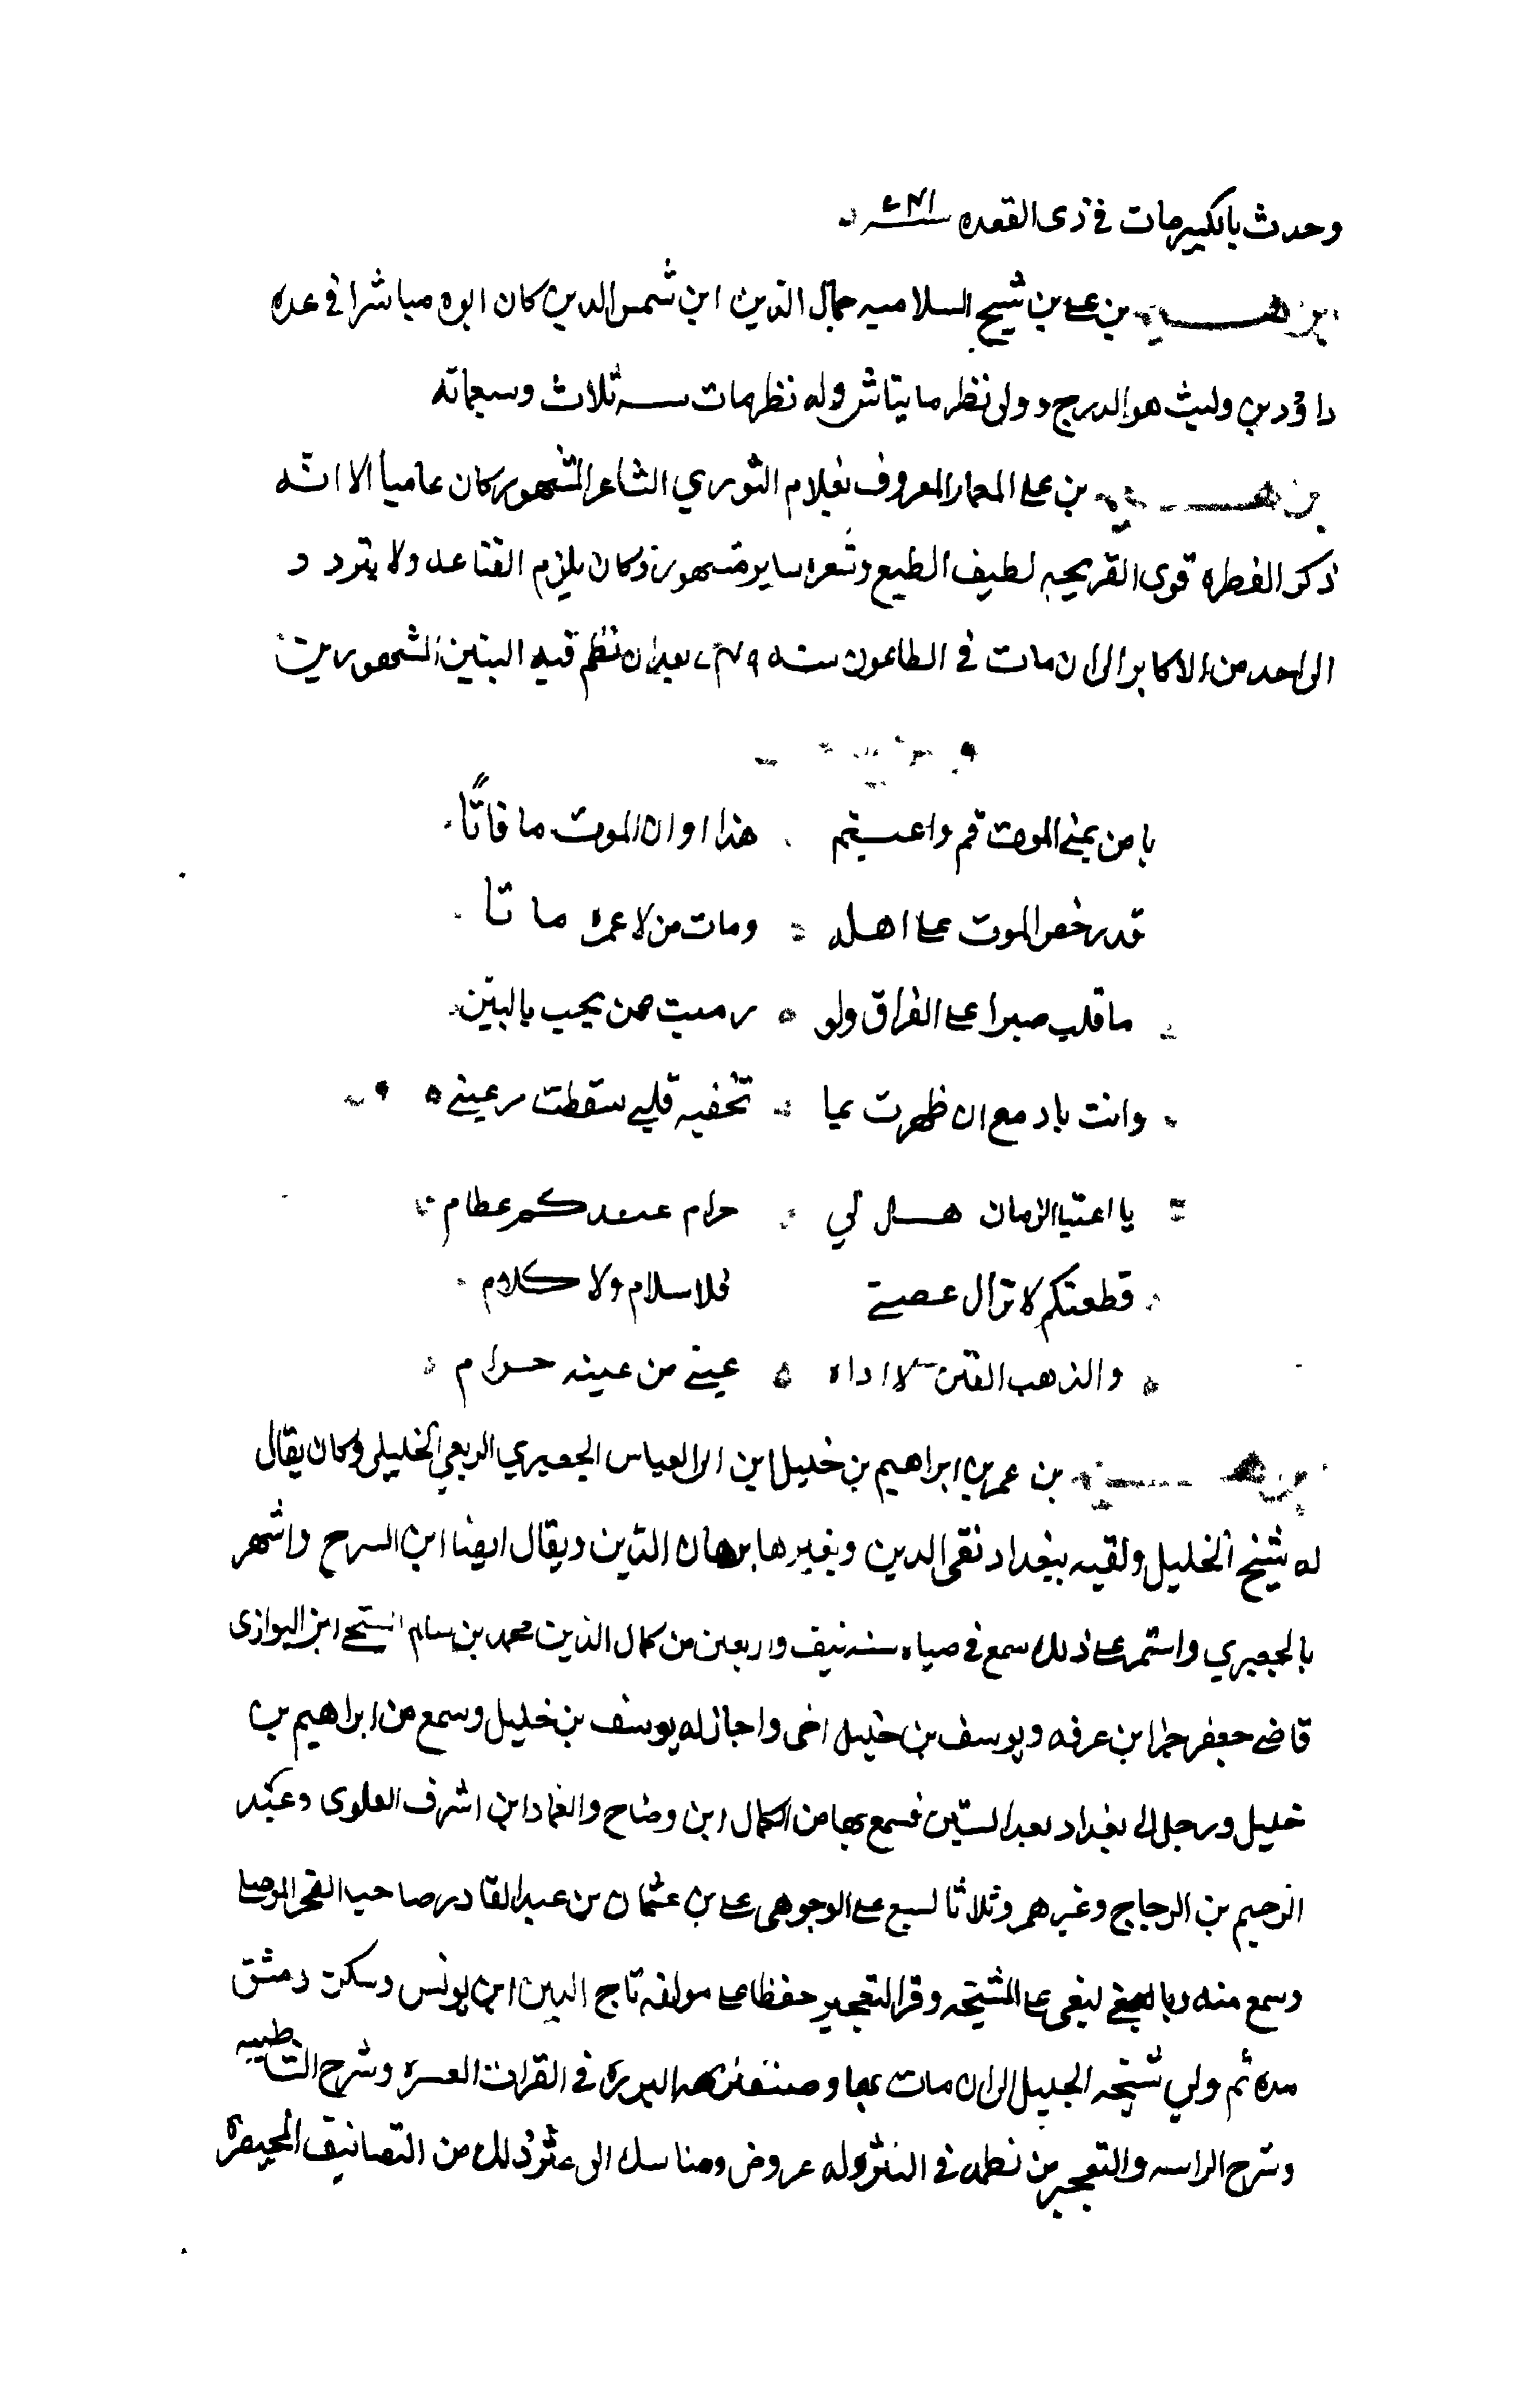 وحدث بالكثير مات في ذى القعده سنه ٧٤١
ابرهيم بن على بن شيخ السلاميه جمال الدين ابن شمس الدين كان ابوه مباشرا في عده
مات سنه ثلاث وسبعمائه
ابرهيم بن على المعمار المعروف بغلام النوري الشاعر المشهور كان عاميا الا انه
ذكى الفطره قوى القريحه لطيف الطبع وشعره ساير مشهور وكان يلزم القناعه ولا يتردد
الى احد من الاكابر الى ان مات في الطاعون سنه ٧٤٩ بعد ان نظم فيه البيتين المشهورين
يا من تمنى الموت قم واغتنم هذا اوان الموت ما فاتا
قد رخص الموت على اهله ومات من لا عمره ماتا
ما قلب صبرا على الفراق ولو رميت ممن يحب بالبين
وانت يا دمع ان ظهرت بما تخفيه قلبي سقطت من عيني
يا اغنيا الزمان هل لي حرام عندكم عظام
قطعتكم لا تزال غضبى فلا سلام ولا كلام
والذهب العين لا اراه عيني من عينه حرام
ابرهيم بن عمر بن ابراهيم بن خليل ابن ابي العباس الجعبري الربعي الخليلي وكان يقال
له شيخ الخليل ولقبه ببغداد تقى الدين وبغيرها برهان الدين ويقال ايضا ابن السراج واشهر
بالجعبري واستمر على ذلك سمع في صباه سنه نيف واربعين من كمال الدين محمد بن سالم المنبجي ابن البوازى
قاضي جعبر جزا بن عرفه ويوسف بن خليل اخى واجاز له يوسف بن خليل وسمع من ابراهيم بن
خليل ورحل الى بغداد بعد الستين فسمع بها من الكمال ابن وضاح والعماد ابن اشرف العلوى وعبد
الرحيم بن الزجاج وغيرهم وتلا بالسبع على الوجوهى على بن عثمان بن عبد القادر صاحب الفخر الموصلي
وسمع منه على المشيخه وقرا التعجيز حفظا على مولفه تاج الدين ابن يونس وسكن دمشق
مده ثم ولي مشيخه الخليل الى ان مات بها وصنف في القرات العشره وشرح الشاطبيه
وشرح الرائيه والتعجيز من نظمه في النثر وله عروض ومناسك الى غير ذلك من التصانيف المختصره